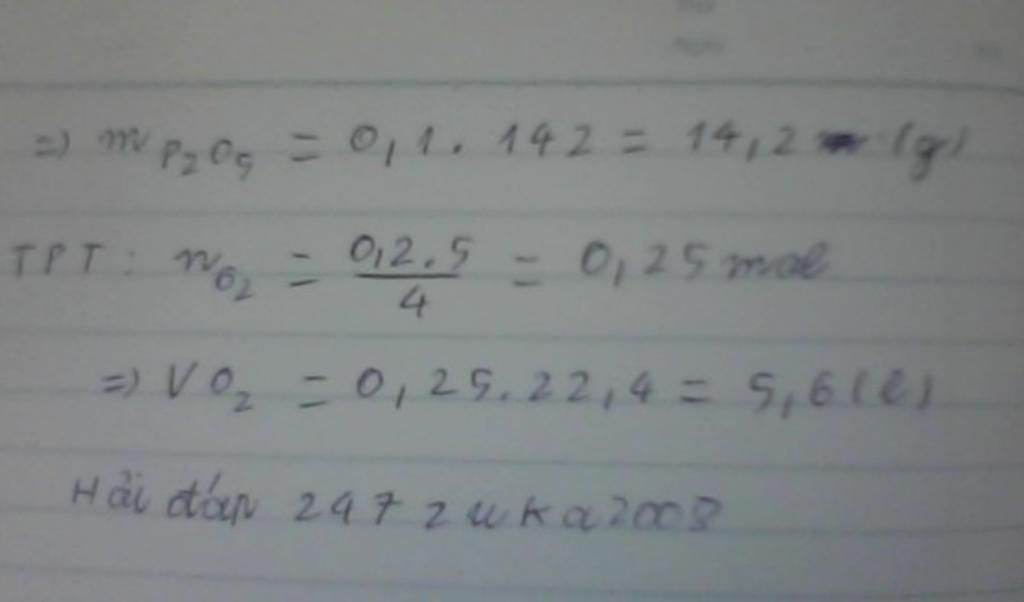 => m P₂O₅ = 0,1 . 142 = 14,2 (g)
TPT : n O₂ = \frac{0,2 . 5}{4} = 0,25 mol
=> V O₂ = 0,25 . 22,4 = 5,6 (l)
Hỏi đáp 247 zuka2008